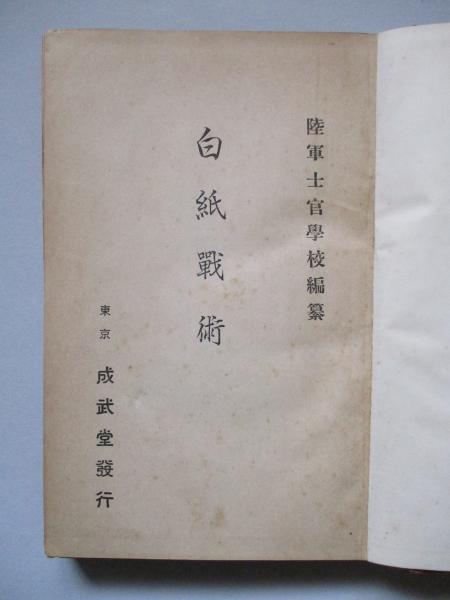 陸軍士官學校編纂
白紙戰術
東京 成武堂發行